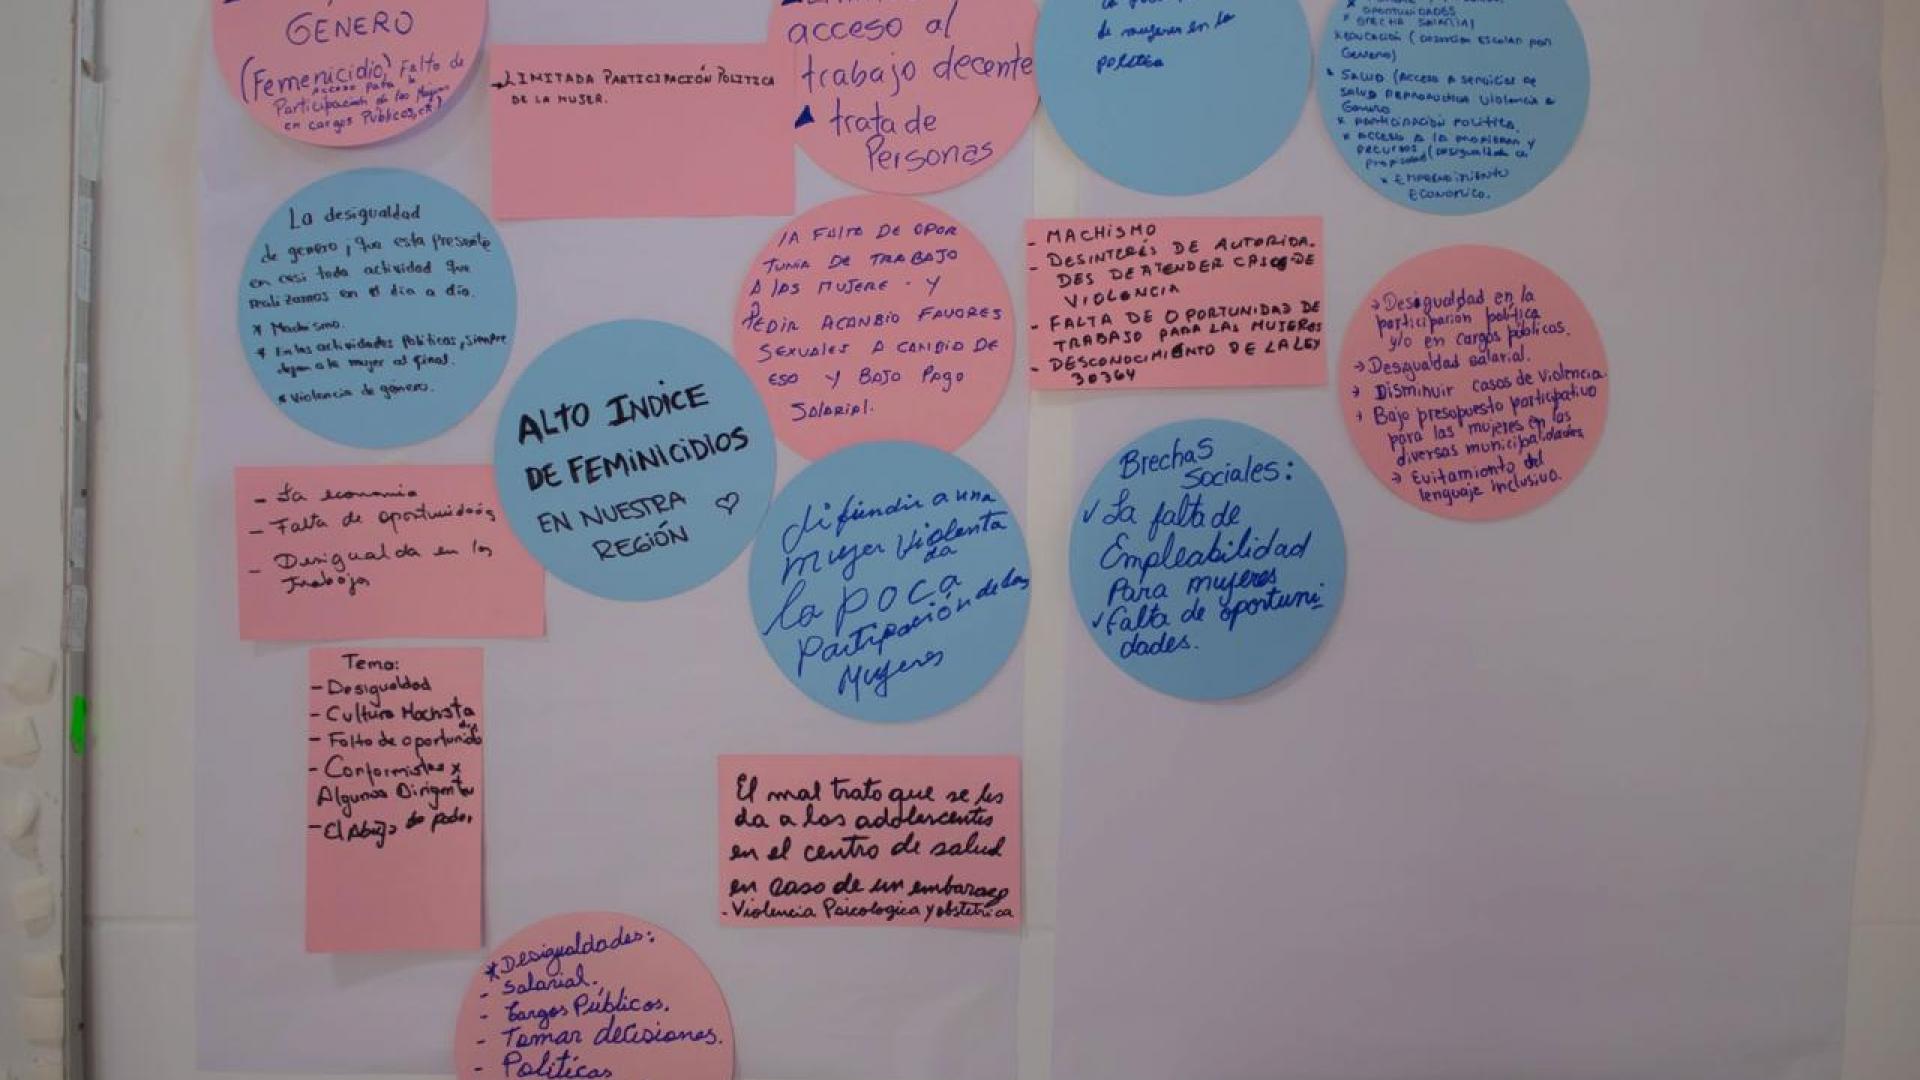 GENERO
(Femenicidio, Falta de
Acceso para la
Participación de las Mujeres
en cargos Publicos, etc)
LIMITADA PARTICIPACIÓN POLITICA
DE LA MUJER.
acceso al
trabajo decente
trata de
Personas
de mujeres en la
política
OPORTUNIDADES
* BRECHA SALARIAL
* EDUCACIÓN (DESERCIÓN ESCOLAR POR
GENERO)
SALUD (ACCESO A SERVICIOS DE
SALUD REPRODUCTIVA VIOLENCIA
GENERO
* PARTICIPACIÓN POLÍTICA.
* ACCESO A LA PROPIEDAD Y
RECURSOS (DESIGUALDAD
PROPIEDAD)
* EMPRENDIMIENTO
ECONOMICO.
La desigualdad
de genero, que esta presente
en casi toda actividad que
realizamos en el día a día.
* Machismo.
* En las actividades Políticas, siempre
dejan a la mujer al final.
* Violencia de género.
LA FALTA DE OPOR
TUNIA DE TRABAJO
A LAS MUJERE - Y
PEDIR ACANBIO FAVORES
SEXUALES A CAMBIO DE
ESO Y BAJO PAGO
SALARIAL.
- MACHISMO
- DESINTERÉS DE AUTORIDA.
DES DE ATENDER CASOS DE
VIOLENCIA
- FALTA DE OPORTUNIDAD DE
TRABAJO PARA LAS MUJERES
- DESCONOCIMIENTO DE LA LEY
30364
→ Desigualdad en la
participación política
y/o en cargos públicos.
→ Desigualdad salarial.
→ Disminuir casos de Violencia.
→ Bajo presupuesto participativo
para las mujeres en las
diversas municipalidades
→ Evitamiento del
lenguaje inclusivo.
ALTO INDICE
DE FEMINICIDIOS
EN NUESTRA ♡
REGIÓN
- La economia
- Falta de oportunidades
- Desigualda en los
trabajos
difundir a una
mujer Violenta
da
la poca
Participación de las
Mujeres
Brechas
Sociales:
✓ La falta de
Empleabilidad
Para mujeres
✓ Falta de oportuni
dades.
Tema:
- Desigualdad
- Cultura Machista
- Falta de oportunidades
- Conformistas x
Algunos Dirigentes
- El Abuso de poder.
El mal trato que se les
da a los adolescentes
en el centro de salud
en caso de un embarazo
- Violencia Psicologica y obstetrica
* Desigualdades:
- Salarial.
- Cargos Públicos.
- Tomar decisiones.
- Políticas